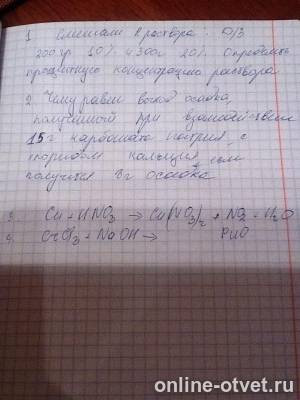 1 Смешали 2 раствора: Д/З
200гр 10% и 300г 20% Определить
процентную концентрацию раствора
2. Чему равен выход осадка,
полученный при взаимодействии
15г карбоната натрия с
хлоридом кальция, если
получится 8г осадка
3. Cu + HNO3 → Cu(NO3)2 + NO2 + H2O
4. CrCl3 + NaOH → РИО
online-otvet.ru